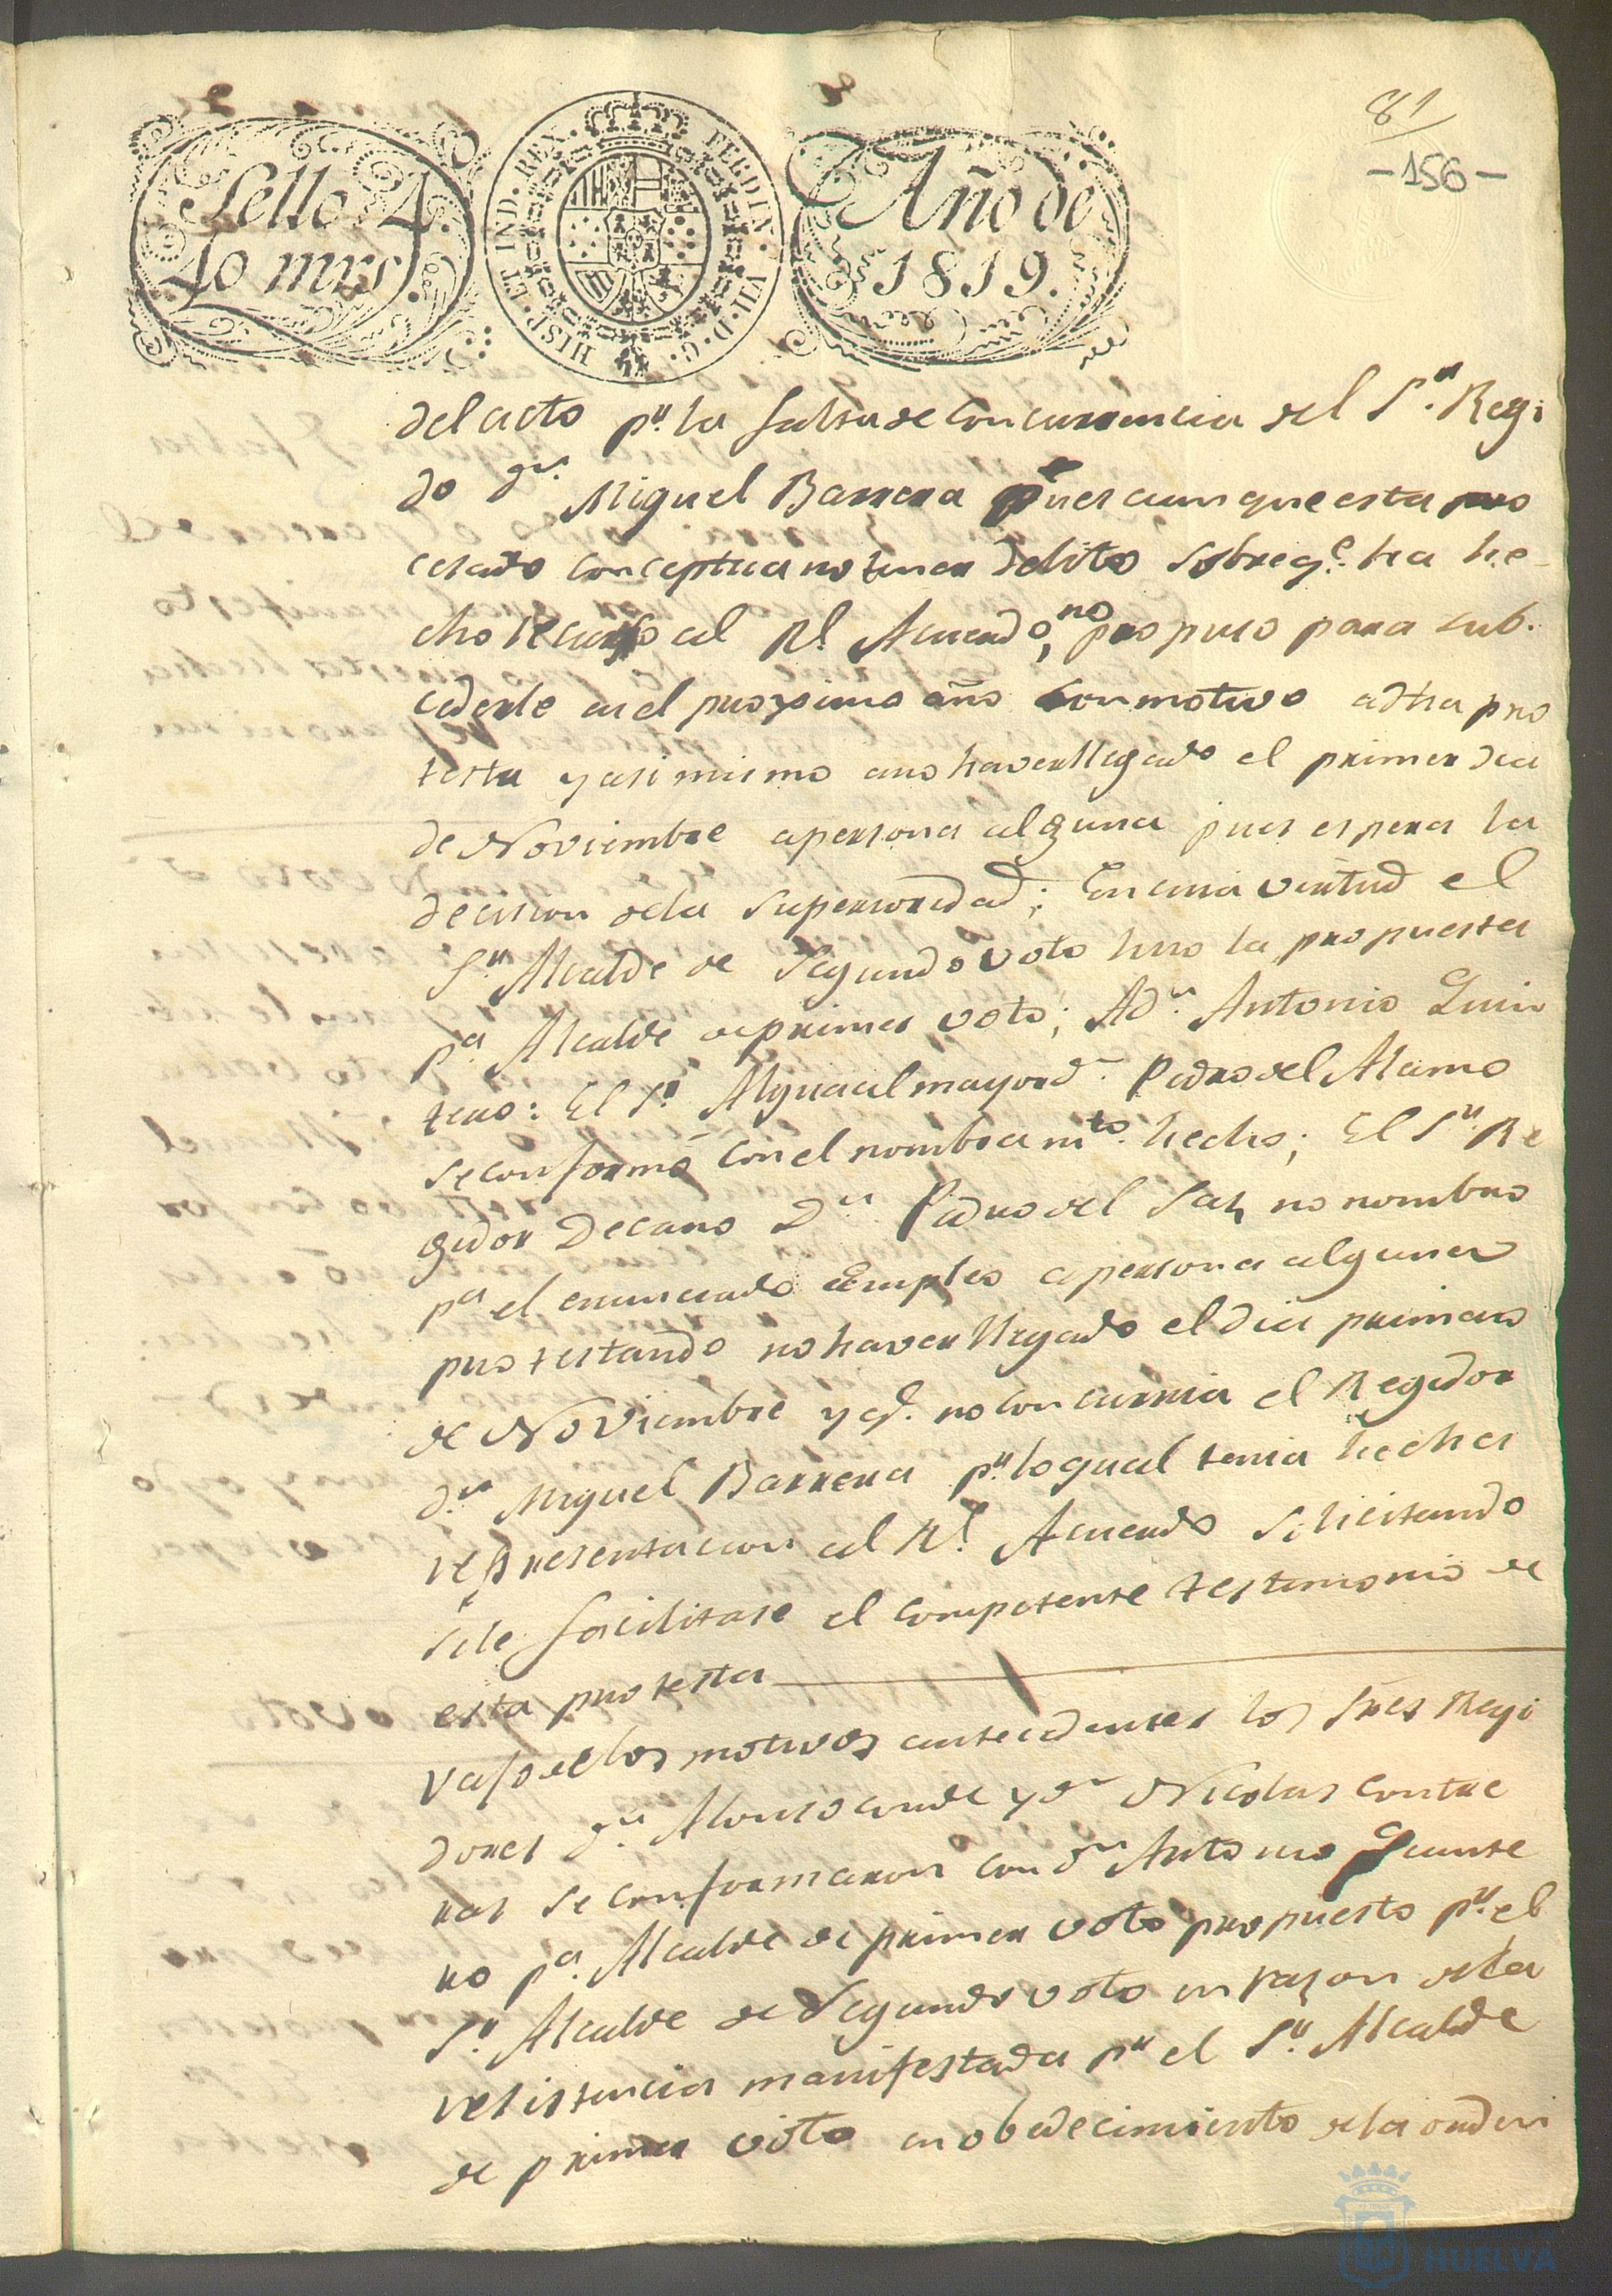 81
-156-
Sello 4.º
40 mrs.
HISP. ET IND. REX. FERDIN. VII. D. G.
Año de
1819.
del acto pr. la falta de concurrencia del Sr. Regi
do dn. Miguel Barrera pues aunque esta pro
cesado conceptua no tener delito sobre qe. ha he
cho recurso al Rl. Acuerdo, no propuso para sub.
cederle en el proximo año con motivo a dha pro
testa y asi mismo a no haver llegado el primer dia
de Noviembre a persona alguna pues espera la
decision de la superioridad; En cuia virtud el
Sr. Alcalde de Segundo voto hizo la propuesta
pa. Alcalde de primer voto; A dn. Antonio Quin
tero: El Sr. Alguacil mayor dn. Pedro del Alamo
se conformó con el nombramto. hecho; El Sr. Re
gidor Decano Dn. Pedro del Saz no nombro
pa el enunciado Empleo a persona alguna
protestando no haver llegado el dia primero
de Noviembre y qe. no concurria el Regidor
dn. Miguel Barrera pr. lo qual tenia hecha
representacion al Rl. Acuerdo solicitando
sele facilitase el competente testimonio de
esta protesta
Vajo de los motivos antecedentes los Sres Regi
dores dn. Alonso conde y dn Nicolas Contre
ras se conformaron con dn Antonio Quinte
ro pa. Alcalde de primer voto propuesto pr. el
Sr. Alcalde de Segundo voto en razon dela
resistencia manifestada pr el Sr. Alcalde
de primer voto en obedecimiento dela orden
HUELVA